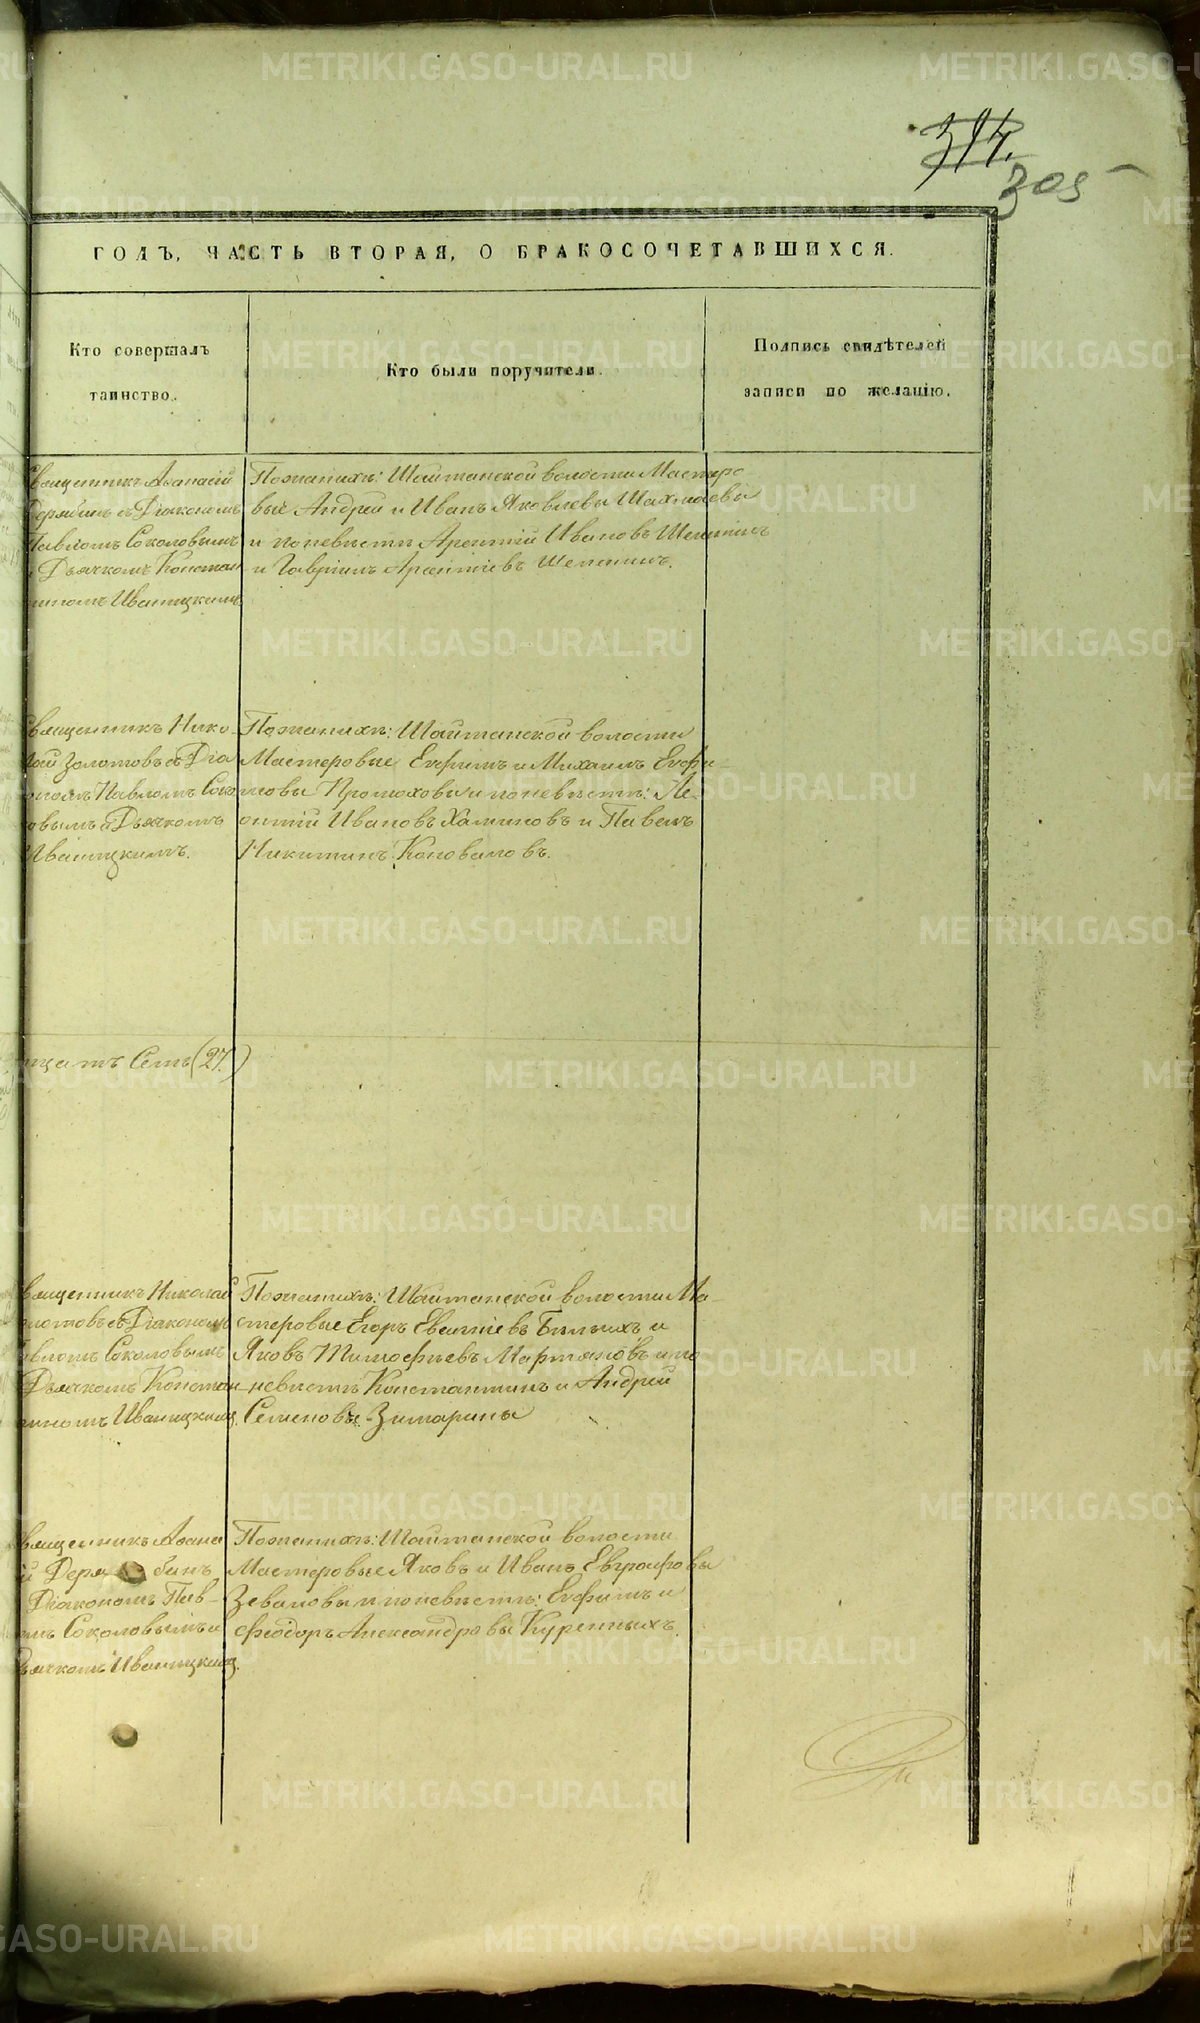 314.
305
ГОДЪ, ЧАСТЬ ВТОРАЯ, О БРАКОСОЧЕТАВШИХСЯ.
Кто совершалъ
таинство.
Кто были поручители.
Подпись свидѣтелей
записи по желанію.
Священникъ Аѳанасій
Дерябинъ съ Діакономъ
Павломъ Соколовымъ
и Дьячкомъ Констан
тиномъ Иваницкимъ
По женихѣ: Шайтанской волости Мастеро
вые Андрей и Иванъ Яковлевы Шахмаевы
и по невѣстѣ Арсентій Ивановъ
и Гавріилъ Арсентіевъ
Священникъ Нико
лай Золотовъ съ Діа
кономъ Павломъ Соко
ловымъ и Дьячкомъ
Иваницкимъ.
По женихѣ: Шайтанской волости
Мастеровые Ефимъ и Михаилъ Ефи
мовы и по невѣстѣ: Ле
онтій Ивановъ Халиновъ и Павелъ
Никитинъ Коноваловъ.
цать Семь (27.)
Священникъ Николай
Золотовъ съ Діакономъ
Павломъ Соколовымъ
Дьячкомъ Констан
тиномъ Иваницкимъ.
По женихѣ: Шайтанской волости Ма
стеровые Егоръ Евсеніевъ Бѣлыхъ и
Яковъ Тимофѣевъ Мартяновъ и по
невѣстѣ Константинъ и Андрей
Семеновы Зимарины
Священникъ Аѳана
сій Дерябинъ
Діакономъ Пав
ломъ Соколовымъ и
Дьячкомъ Иваницкимъ.
По женихѣ: Шайтанской волости
Мастеровые Яковъ и Иванъ Евграфовы
Зеваловы и по невѣстѣ: Ефимъ и
Феодоръ Александровы Куренныхъ.
METRIKI.GASO-URAL.RU